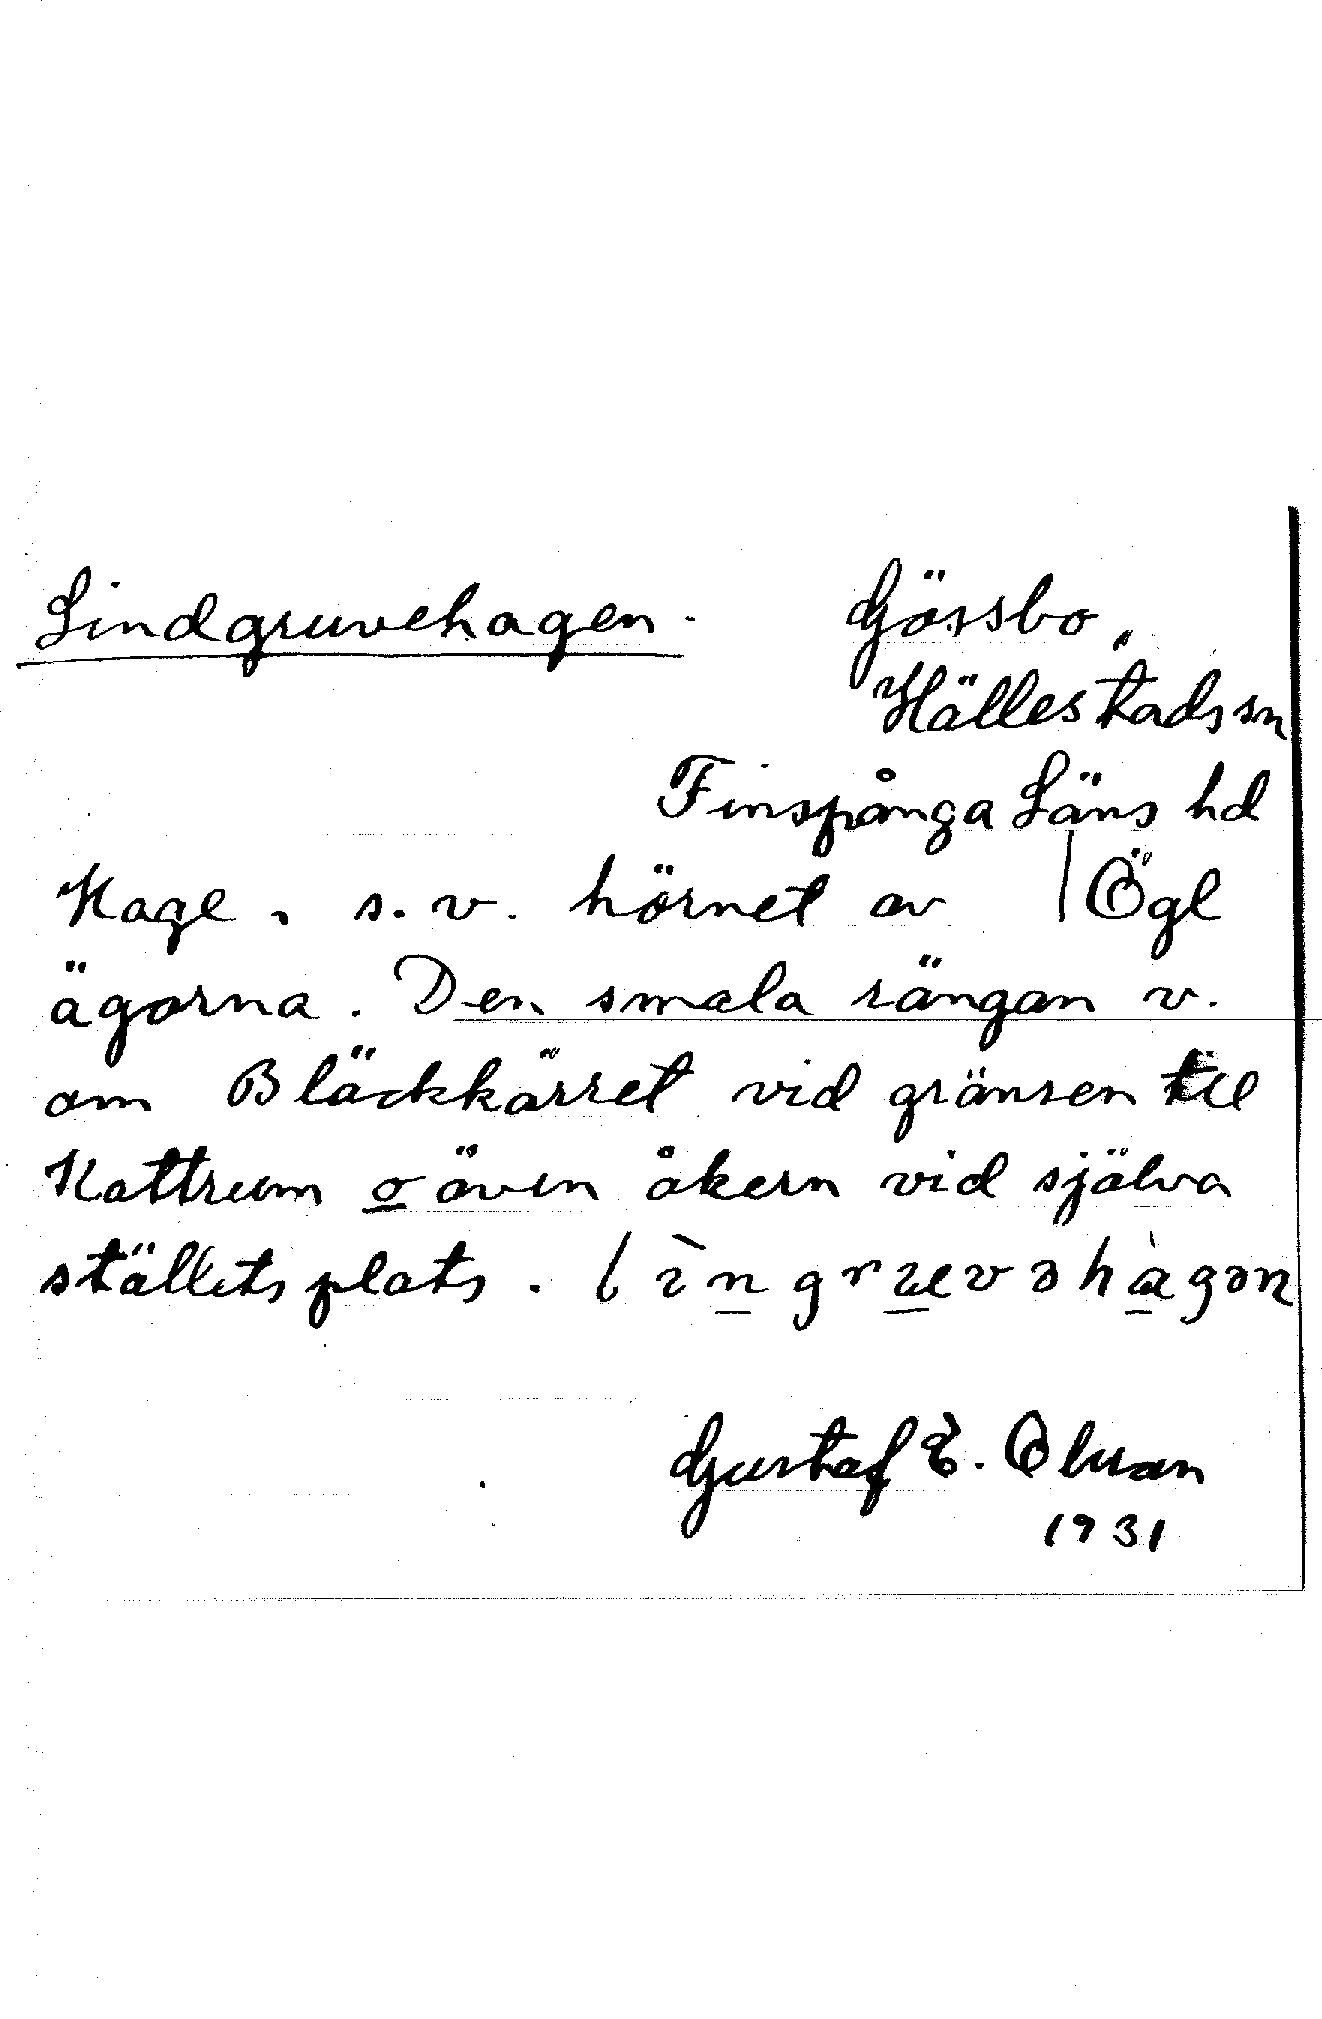 Lindgruvehagen. Gössbo,
Hällestads sn
Finspånga Läns hd
Hage, s.v. hörnet av | Ögl
ägorna. Den smala rängan v.
om Bläckkärret vid gränsen till
Kattrum o även åkern vid själva
ställets plats.
Gustaf E. Olsson
1931